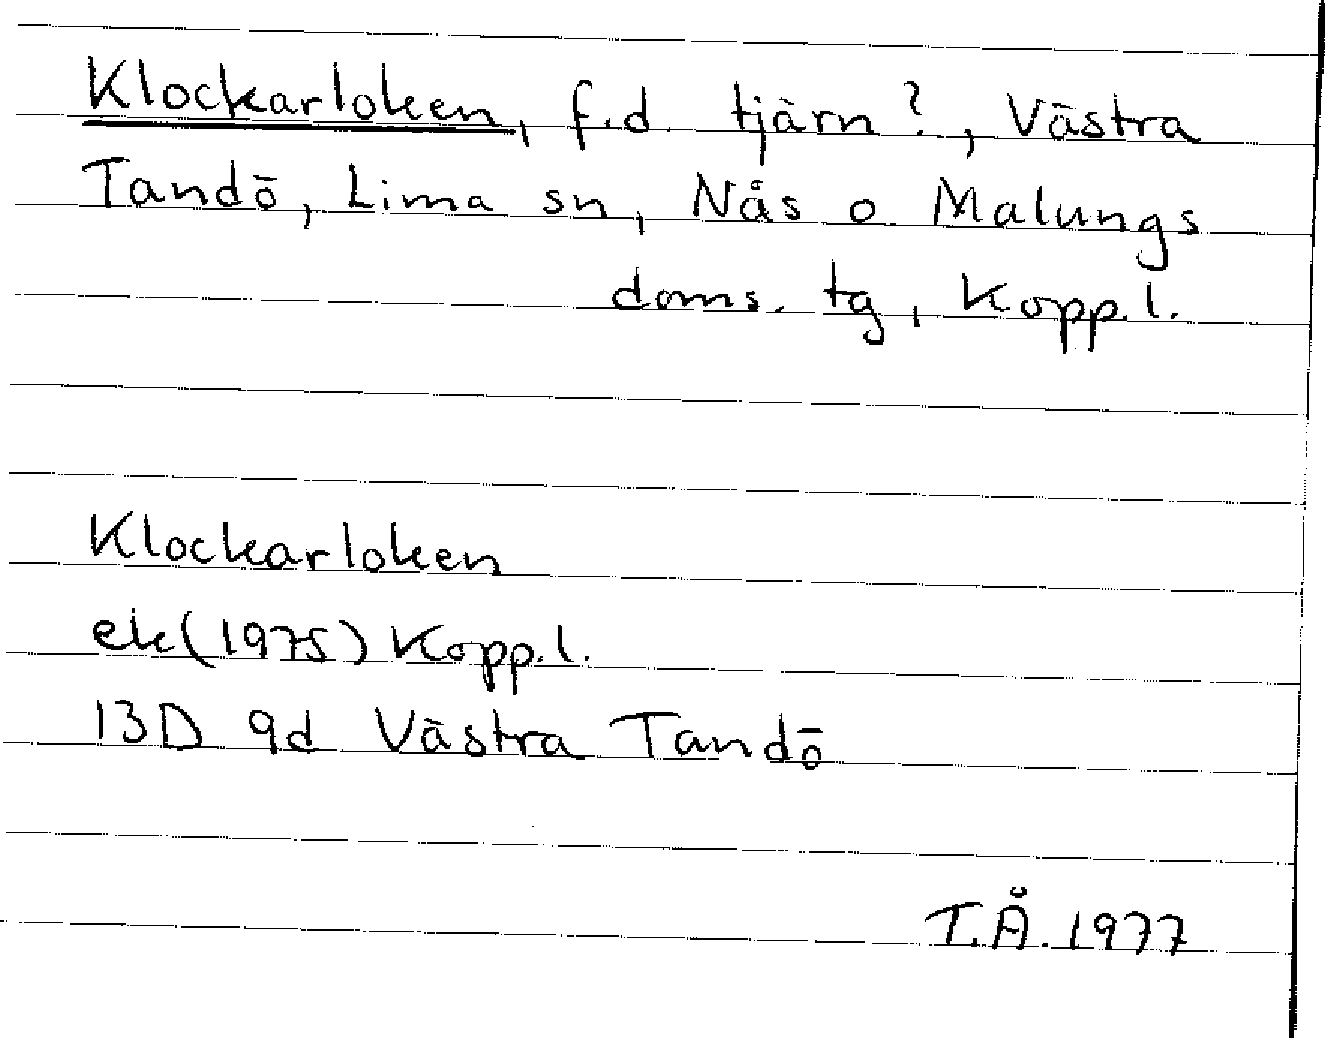 Klockarloken, f.d. tjärn?, Västra
Tandö, Lima sn, Nås o. Malungs
doms. tg, Kopp.l.
Klockarloken
ek(1975) Kopp.l.
13D 9d Västra Tandö
T.Å. 1977